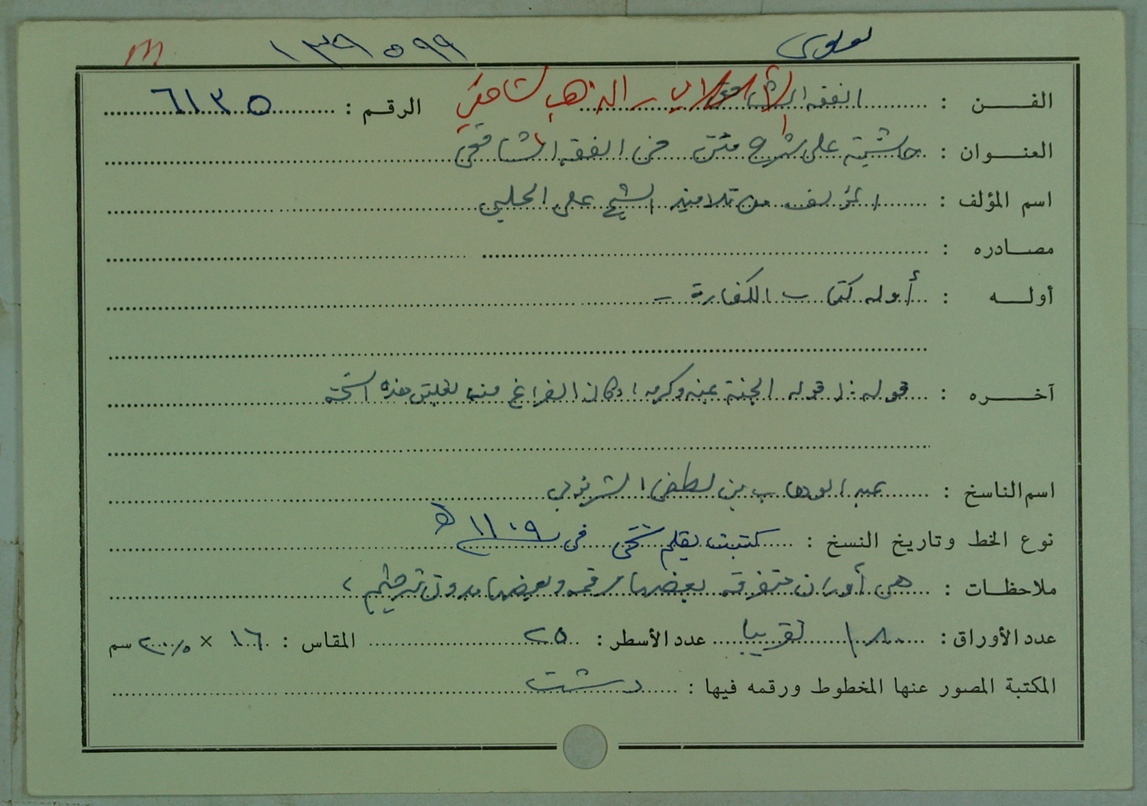 m ١٣٩٥٩٩
الفـن : الفقه الشافعي الرقم : ٦١٣٥
العنـوان : حاشية على شرح متن في الفقه الشافعي
اسم المؤلف : المؤلف من تلاميذ الشيخ علي الحلبي
مصـادره :
أولـه : أوله كتاب الكفارة -
آخـره : قوله: اقوله الجنة بمنه وكرمه، وكان الفراغ منه هذه
اسم الناسخ : عبد الوهاب بن
نوع الخط وتاريخ النسخ : كتبت بقلم في ١١٠٩ هـ
ملاحظات : هي أوراق متفرقة بعضها مرقمة وبعضها بدون ترقيم ،
عدد الأوراق : تقريبا عدد الأسطر : ٢٥ المقاس : ١٦ × سم
المكتبة المصور عنها المخطوط ورقمه فيها : دشت